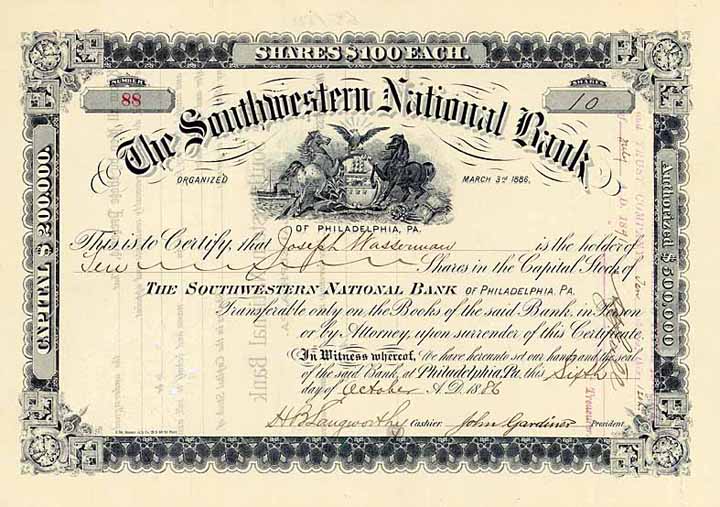 SHARES $100 EACH.
NUMBER
88
SHARES
10
The Southwestern National Bank
ORGANIZED
MARCH 3rd 1886,
OF PHILADELPHIA, PA.
CAPITAL $200,000.
Authorized $500,000
This is to Certify, that Joseph Wasserman is the holder of
Ten Shares in the Capital Stock of
THE SOUTHWESTERN NATIONAL BANK OF PHILADELPHIA, PA.
Transferable only on the Books of the said Bank, in Person
or by Attorney, upon surrender of this Certificate.
In Witness whereof, We have hereunto set our hands and the seal
of the said Bank, at Philadelphia, Pa. this Sixth
day of October A.D. 1886
H B Langworthy Cashier. John Gardiner President